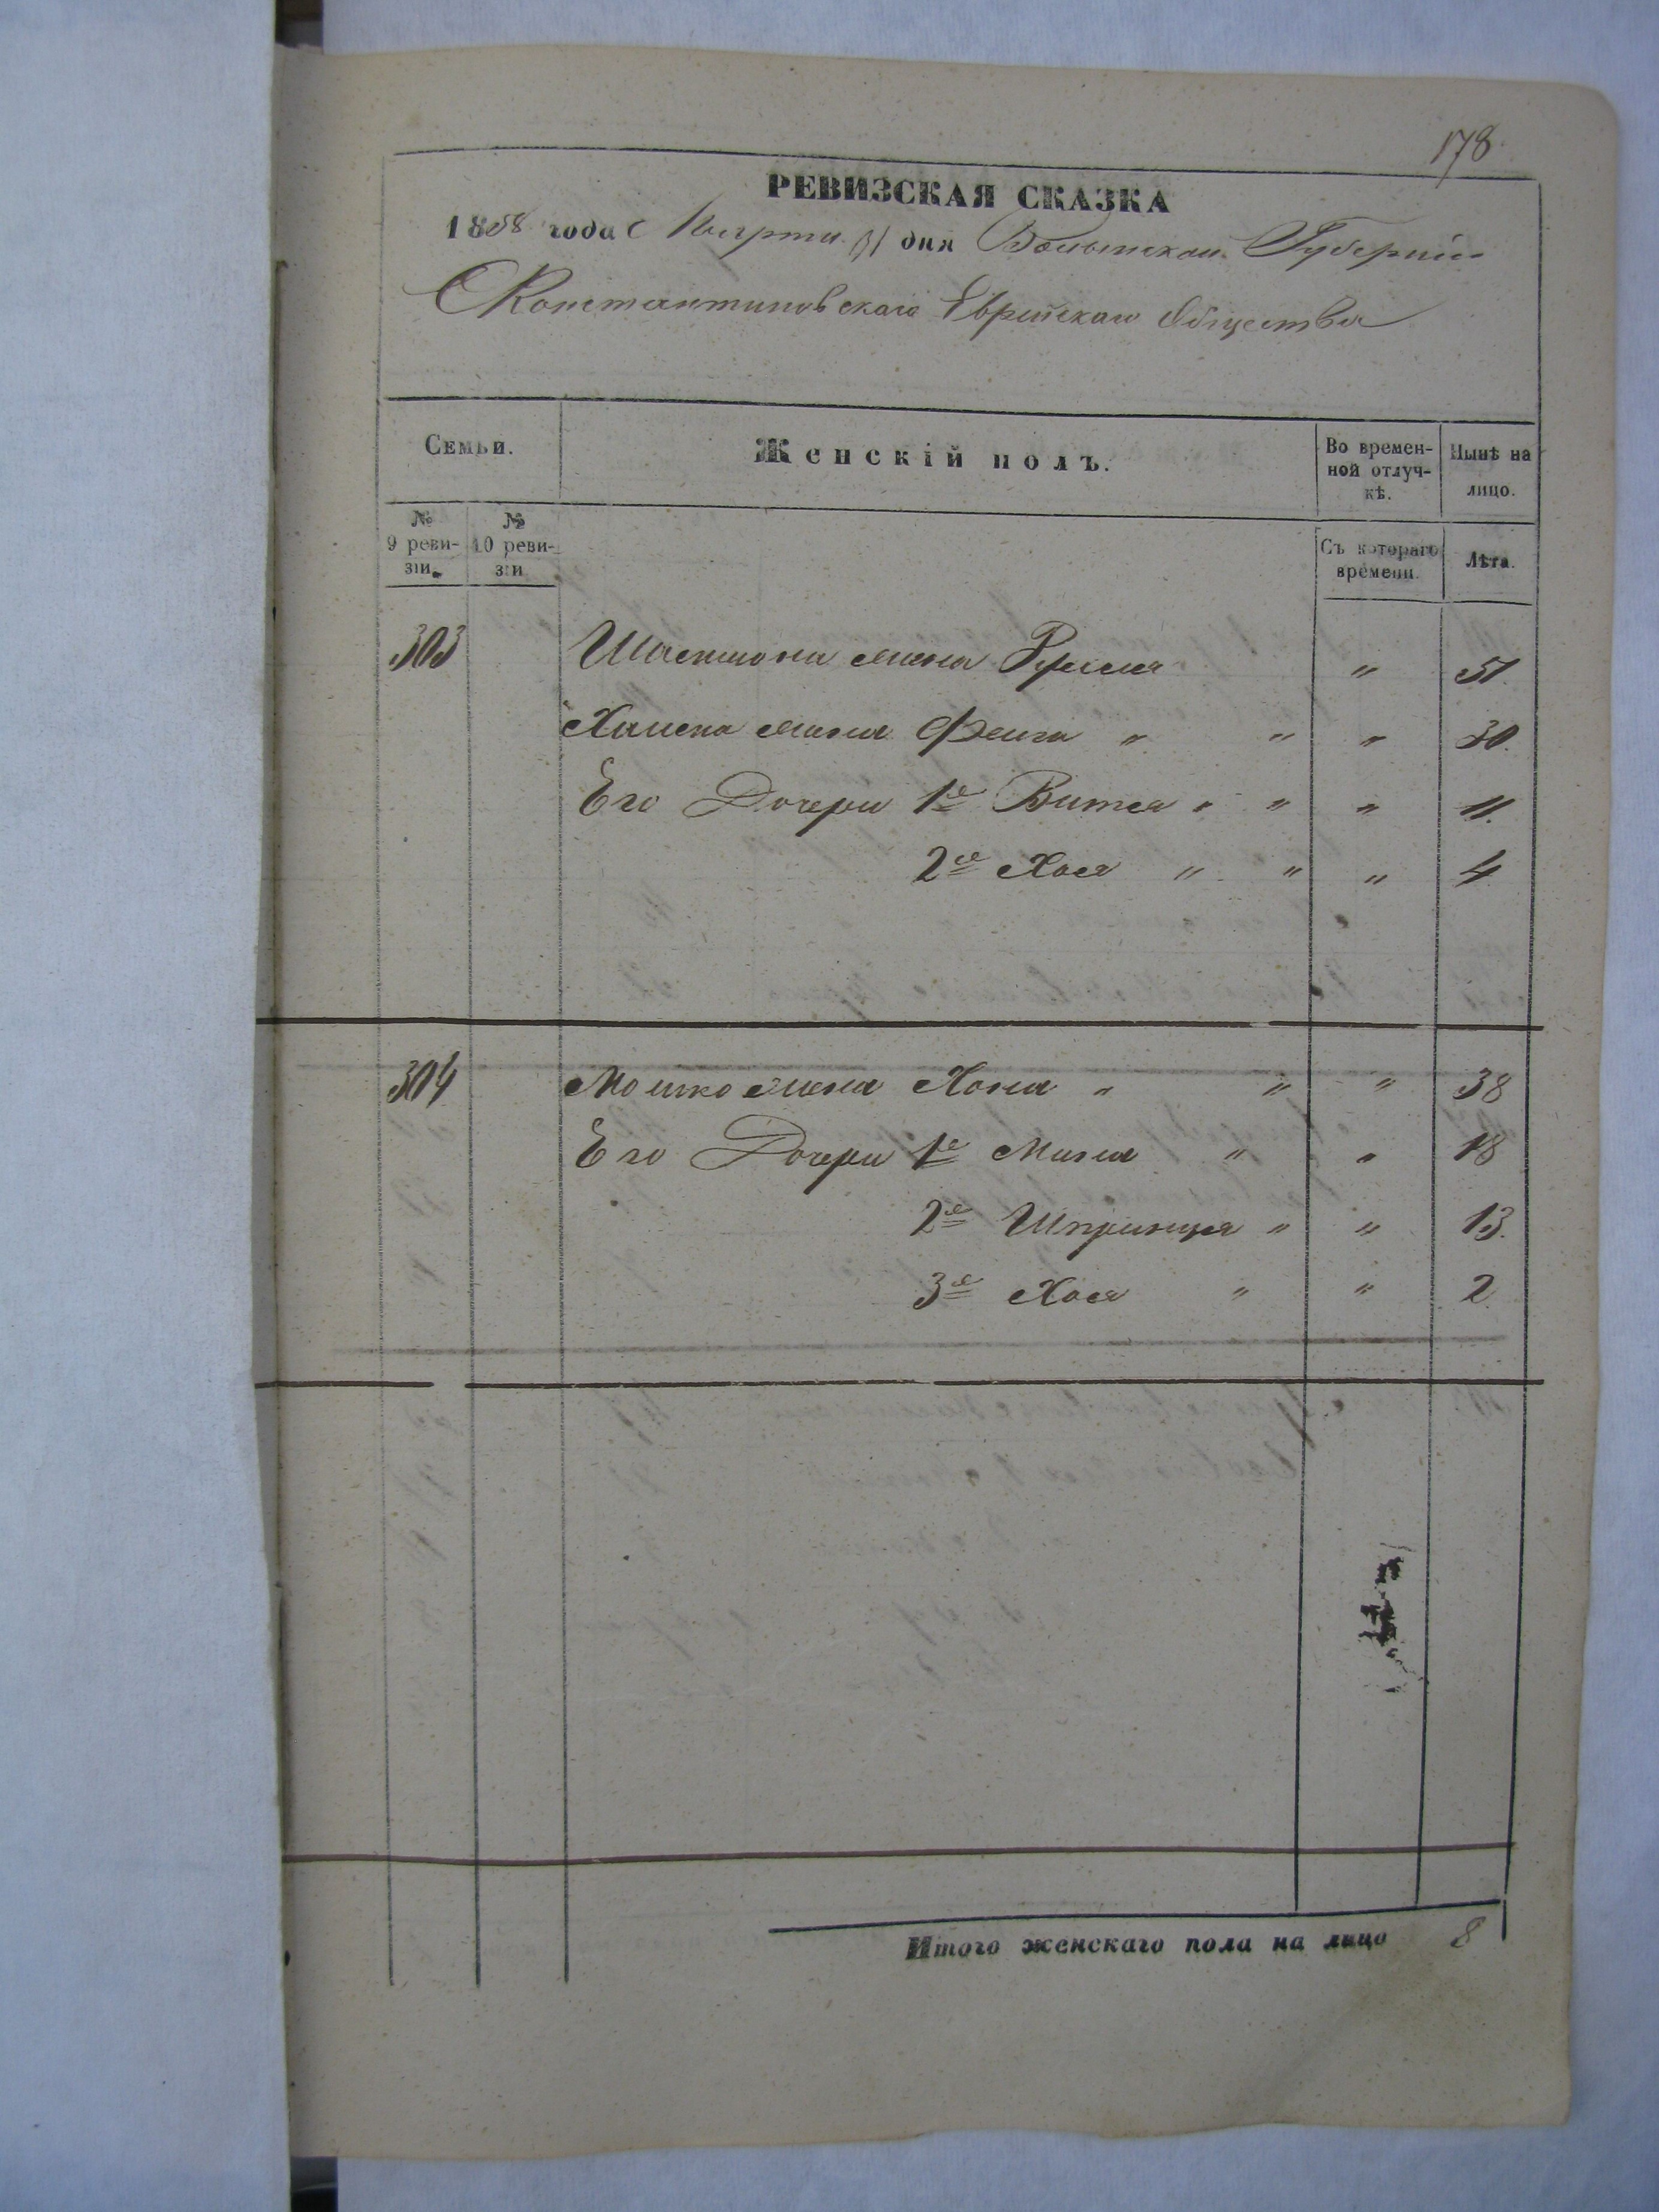 178
РЕВИЗСКАЯ СКАЗКА
1858 года Марта 31 дня Волынской Губернии
Константиновскаго Еврейскаго Общества
Семьи.
Женскій полъ.
Во времен-
ной отлуч-
кѣ.
Нынѣ на
лицо.
№
9 реви-
зіи.
№
10 реви-
зіи
Съ котораго
времени.
Лѣта.
303 жена " 51.
жена Фейга " " " 30.
Его Дочери 1я Витля " " " 11.
2я Хася " " " 4
304 Мошко жена Хана " " " 38
Его Дочери 1я Миня " " 18
2я Шпринця " " 13.
3я Хася " " 2.
Итого женскаго пола на лицо 8